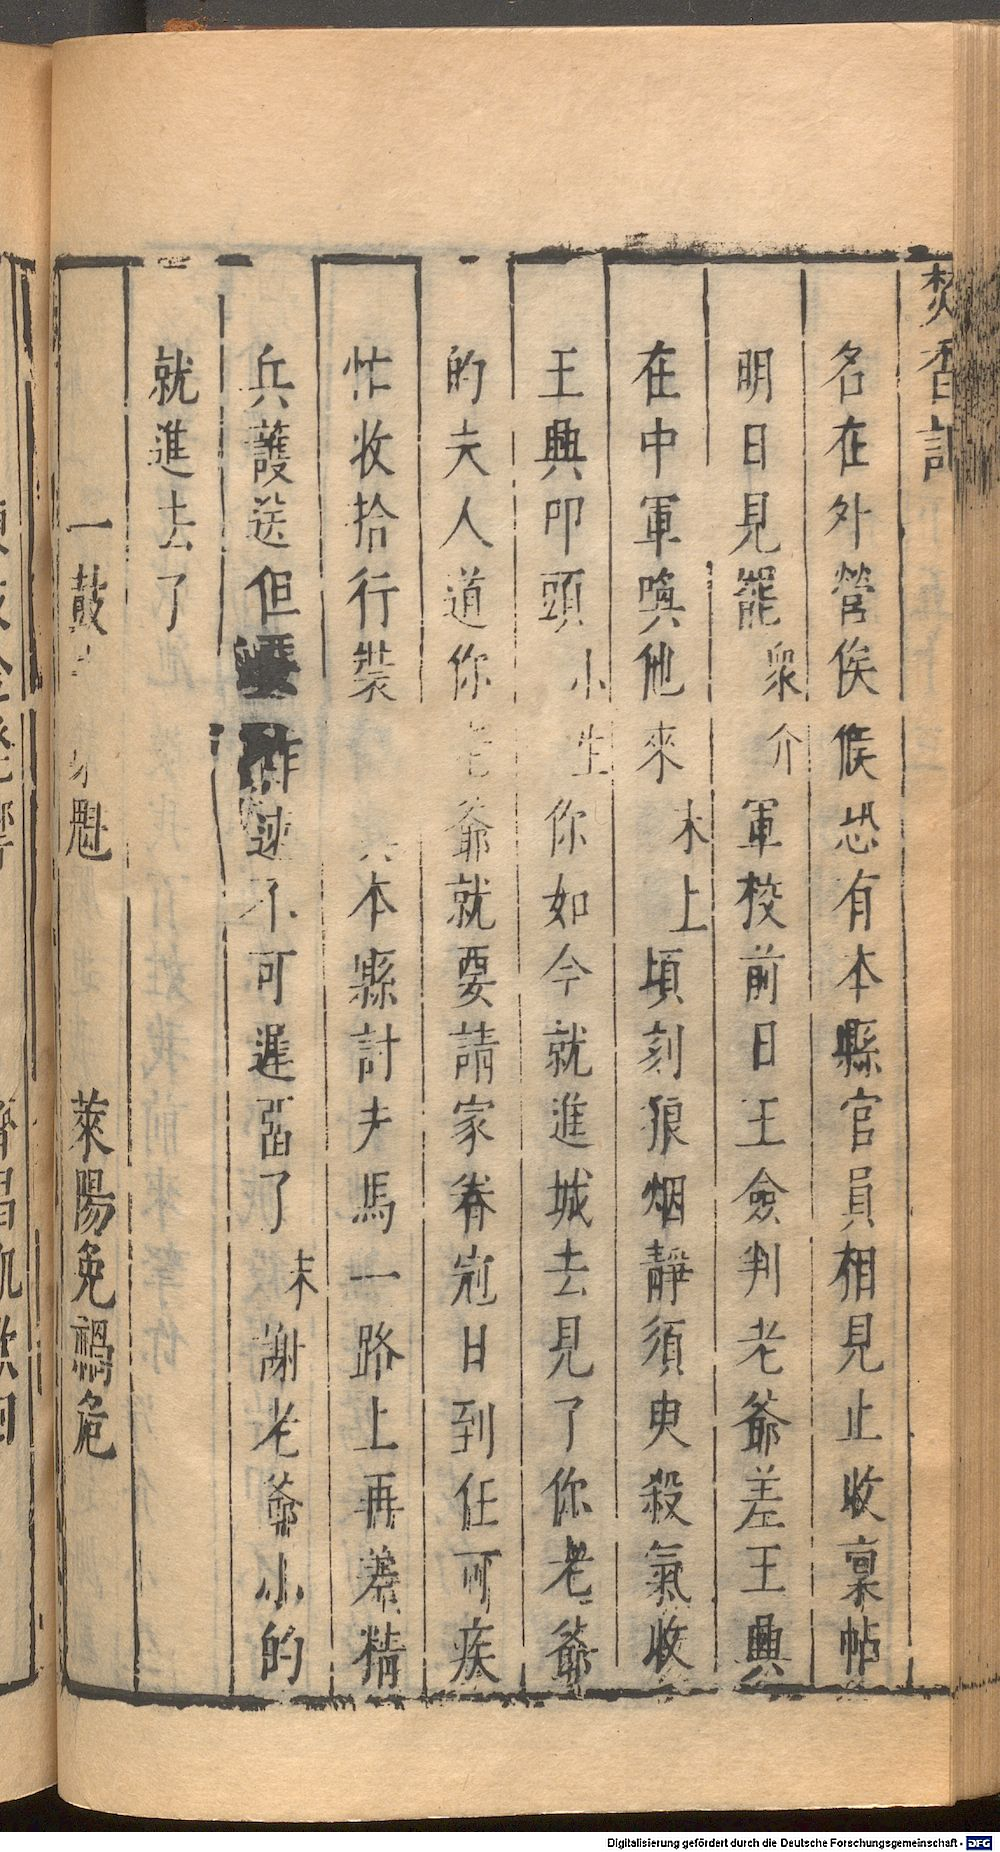 焚香記
名在外營俟候恐有本縣官員相見止收稟帖
明日見罷衆介軍校前日王僉判老爺差王興
在中軍喚他來末上頃刻狼烟靜須臾殺氣收
王興叩頭小生你如今就進城去見了你老爺
的夫人道你老爺就要請家眷剋日到任可疾
忙收拾行裝 本縣討夫馬一路上再差精
兵護送但要作速不可遲畱了末謝老爺小的
就進去了
一鼓 魁 萊陽免禍危
Digitalisierung gefördert durch die Deutsche Forschungsgemeinschaft - DFG